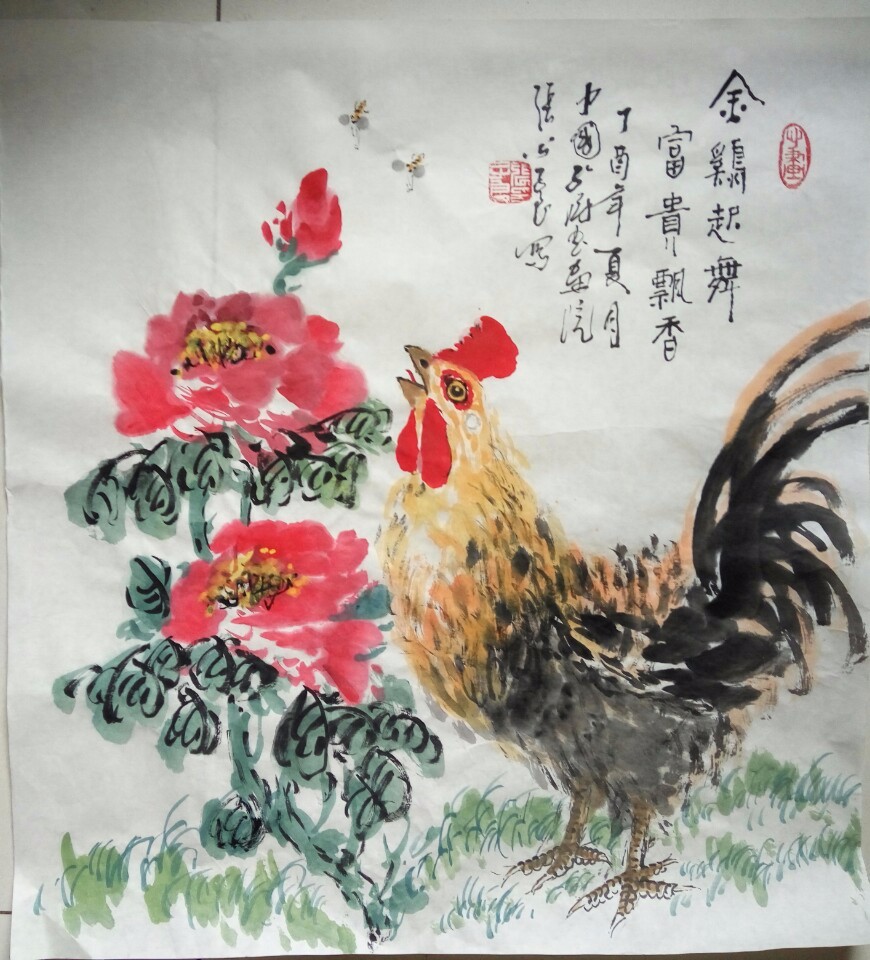 金鷄起舞
富貴飄香
丁酉年夏月
中國孔府书画院
張
寫